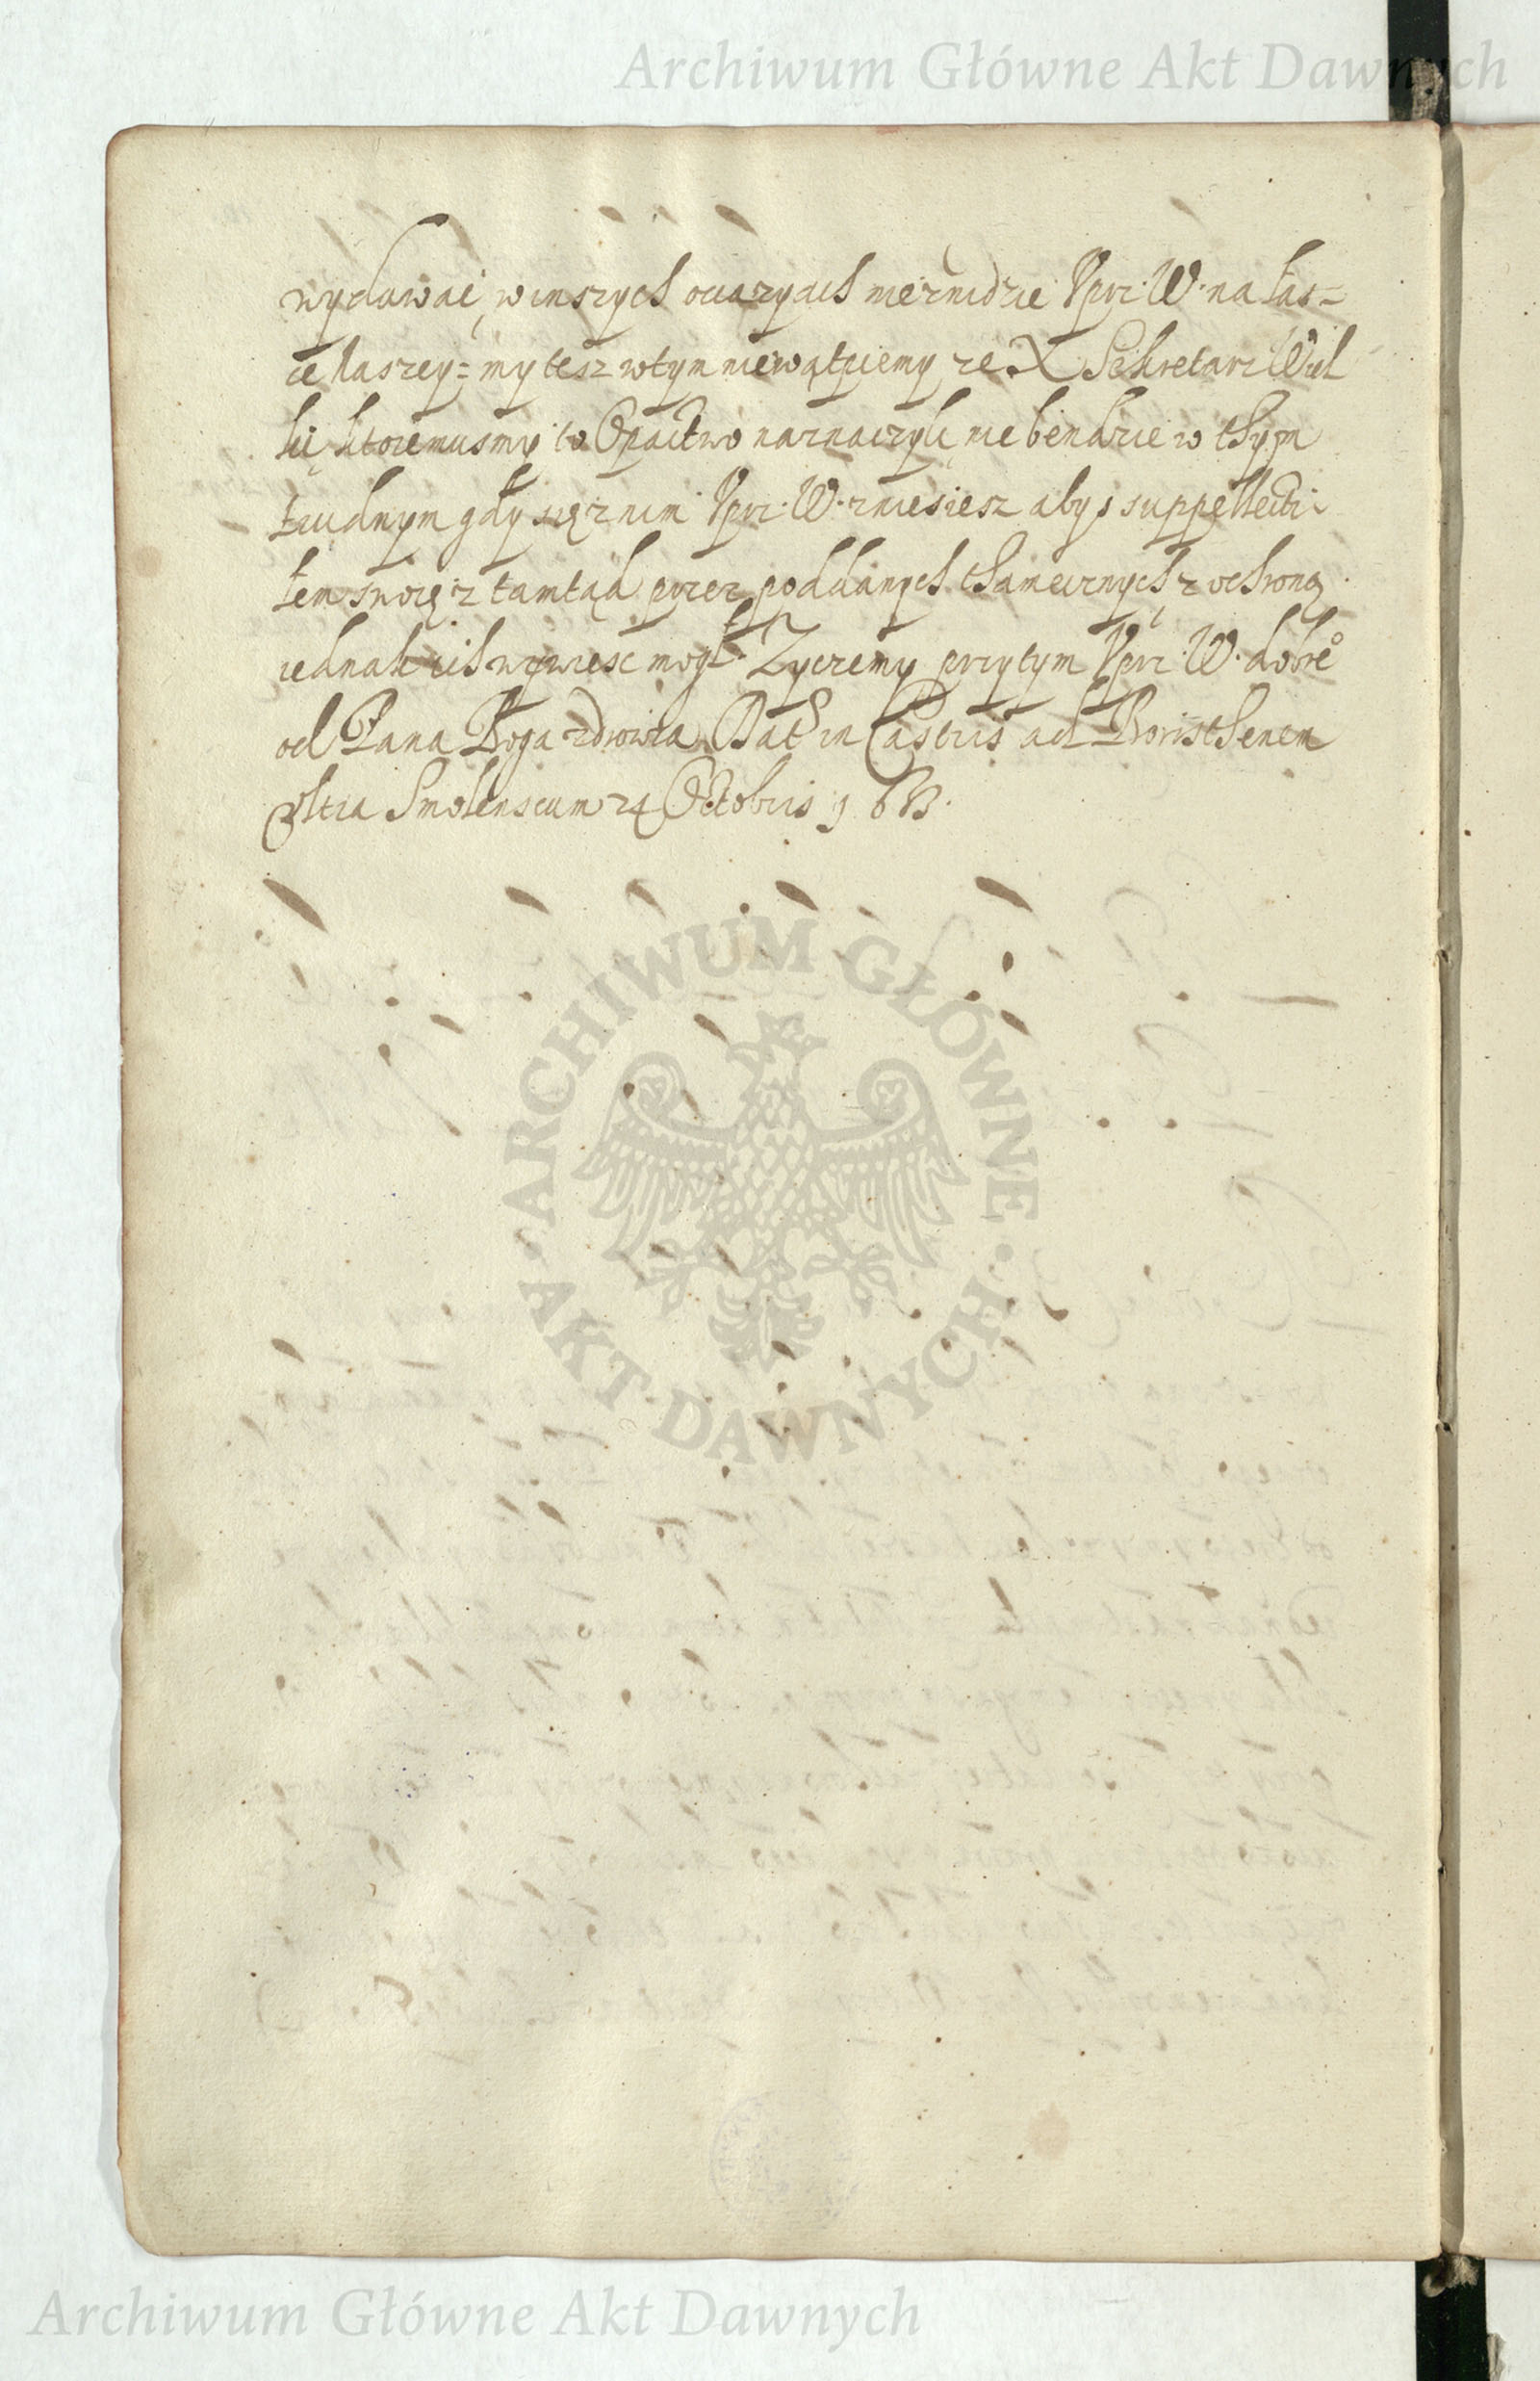 Archiwum Główne Akt Dawnych
wydawać, w inszych occazyach nieznidzie Uprz: W. na łas=
ce Naszey= my tesz wtym niewątpiemy ze X Sekretarz Wiel
ki, ktoremusmy to Opactwo naznaczyli, nie bendzie w thym
trudnym gdy się z nim Uprz: W. zniesiesz abys suppellecti
lem swoię z tamtąd przez poddanych thamecznych, z ochroną
iednak ich wywiesc mogł. Zyczemy przytym Uprz: W. dobre°
od Pana Boga zdrowia. Dat in Castris ad Boristhenem
Vltra Smolenscum 24 Octobris 1633.
ARCHIWUM GŁÓWNE
· AKT · DAWNYCH ·
Archiwum Główne Akt Dawnych